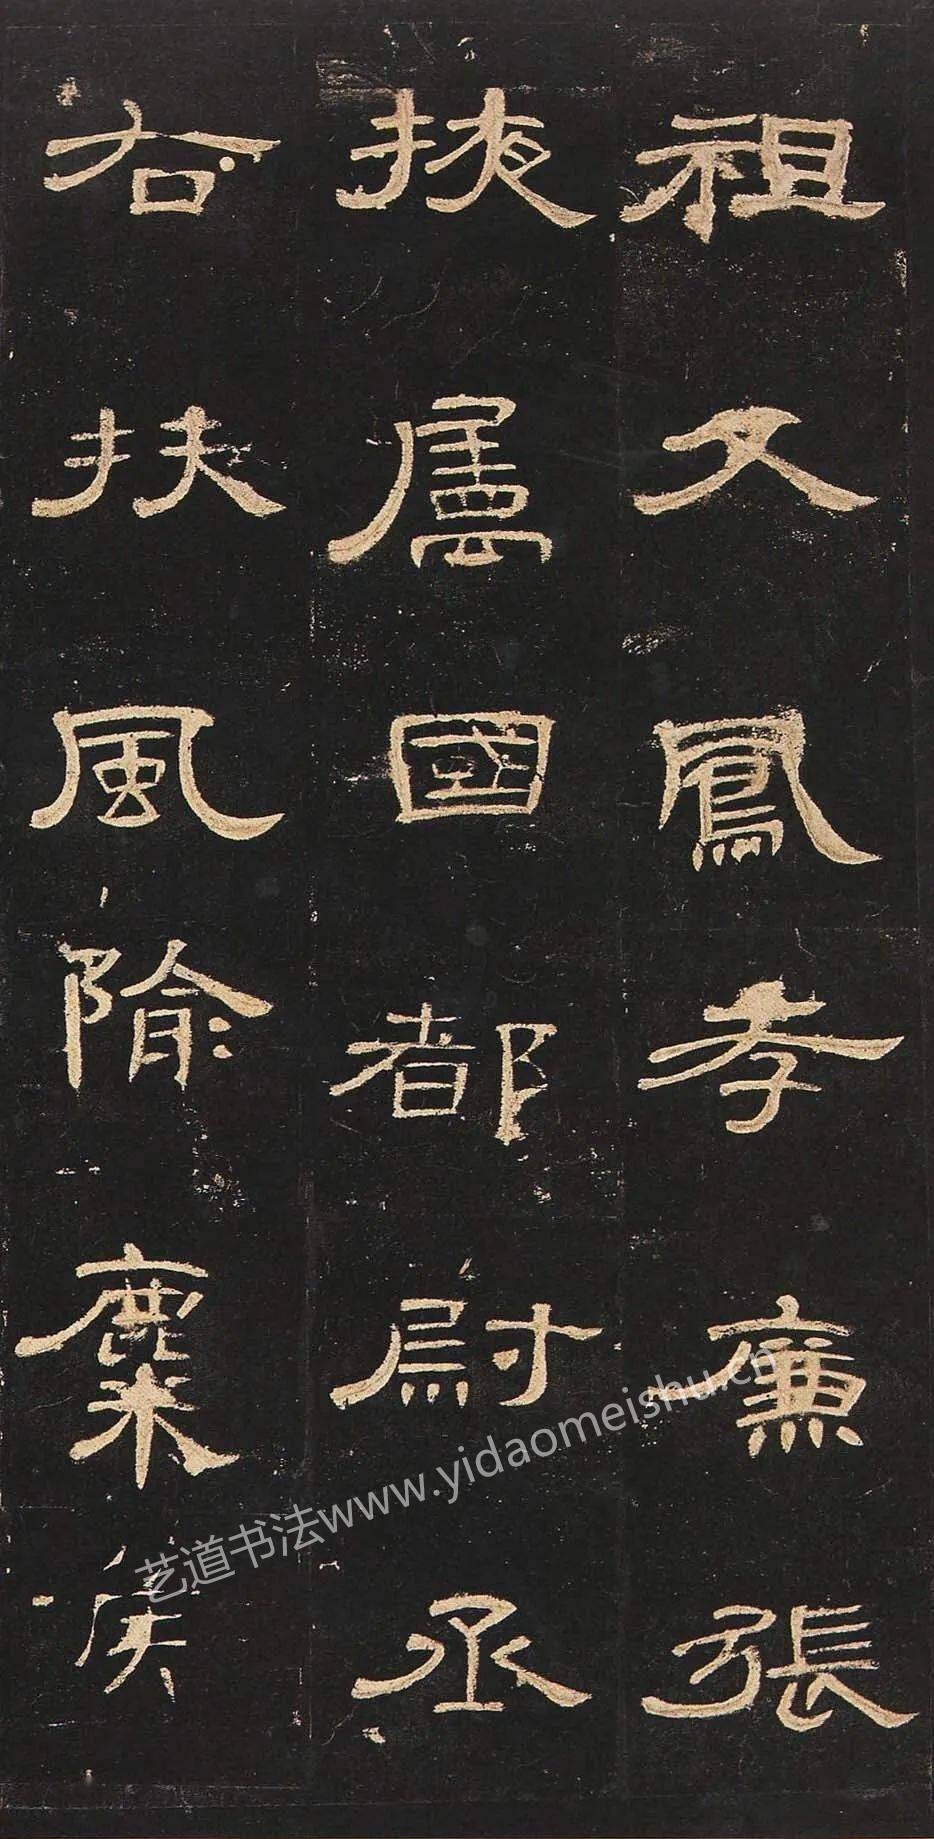 祖父鳳孝廉張
掖屬國都尉丞
右扶風隃麋侯
艺道书法www.yidaomeishu.cn